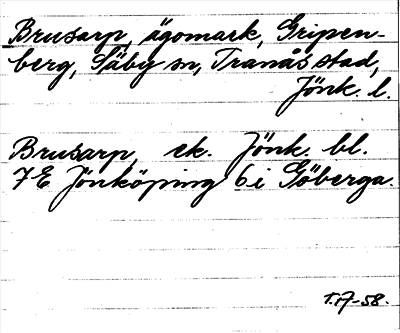 Brusarp, ägomark, Gripen-
berg, Säby sn, Tranås stad,
Jönk. l.
Brusarp, ek. Jönk. bl.
7E Jönköping 6i Göberga.
T.A-58.